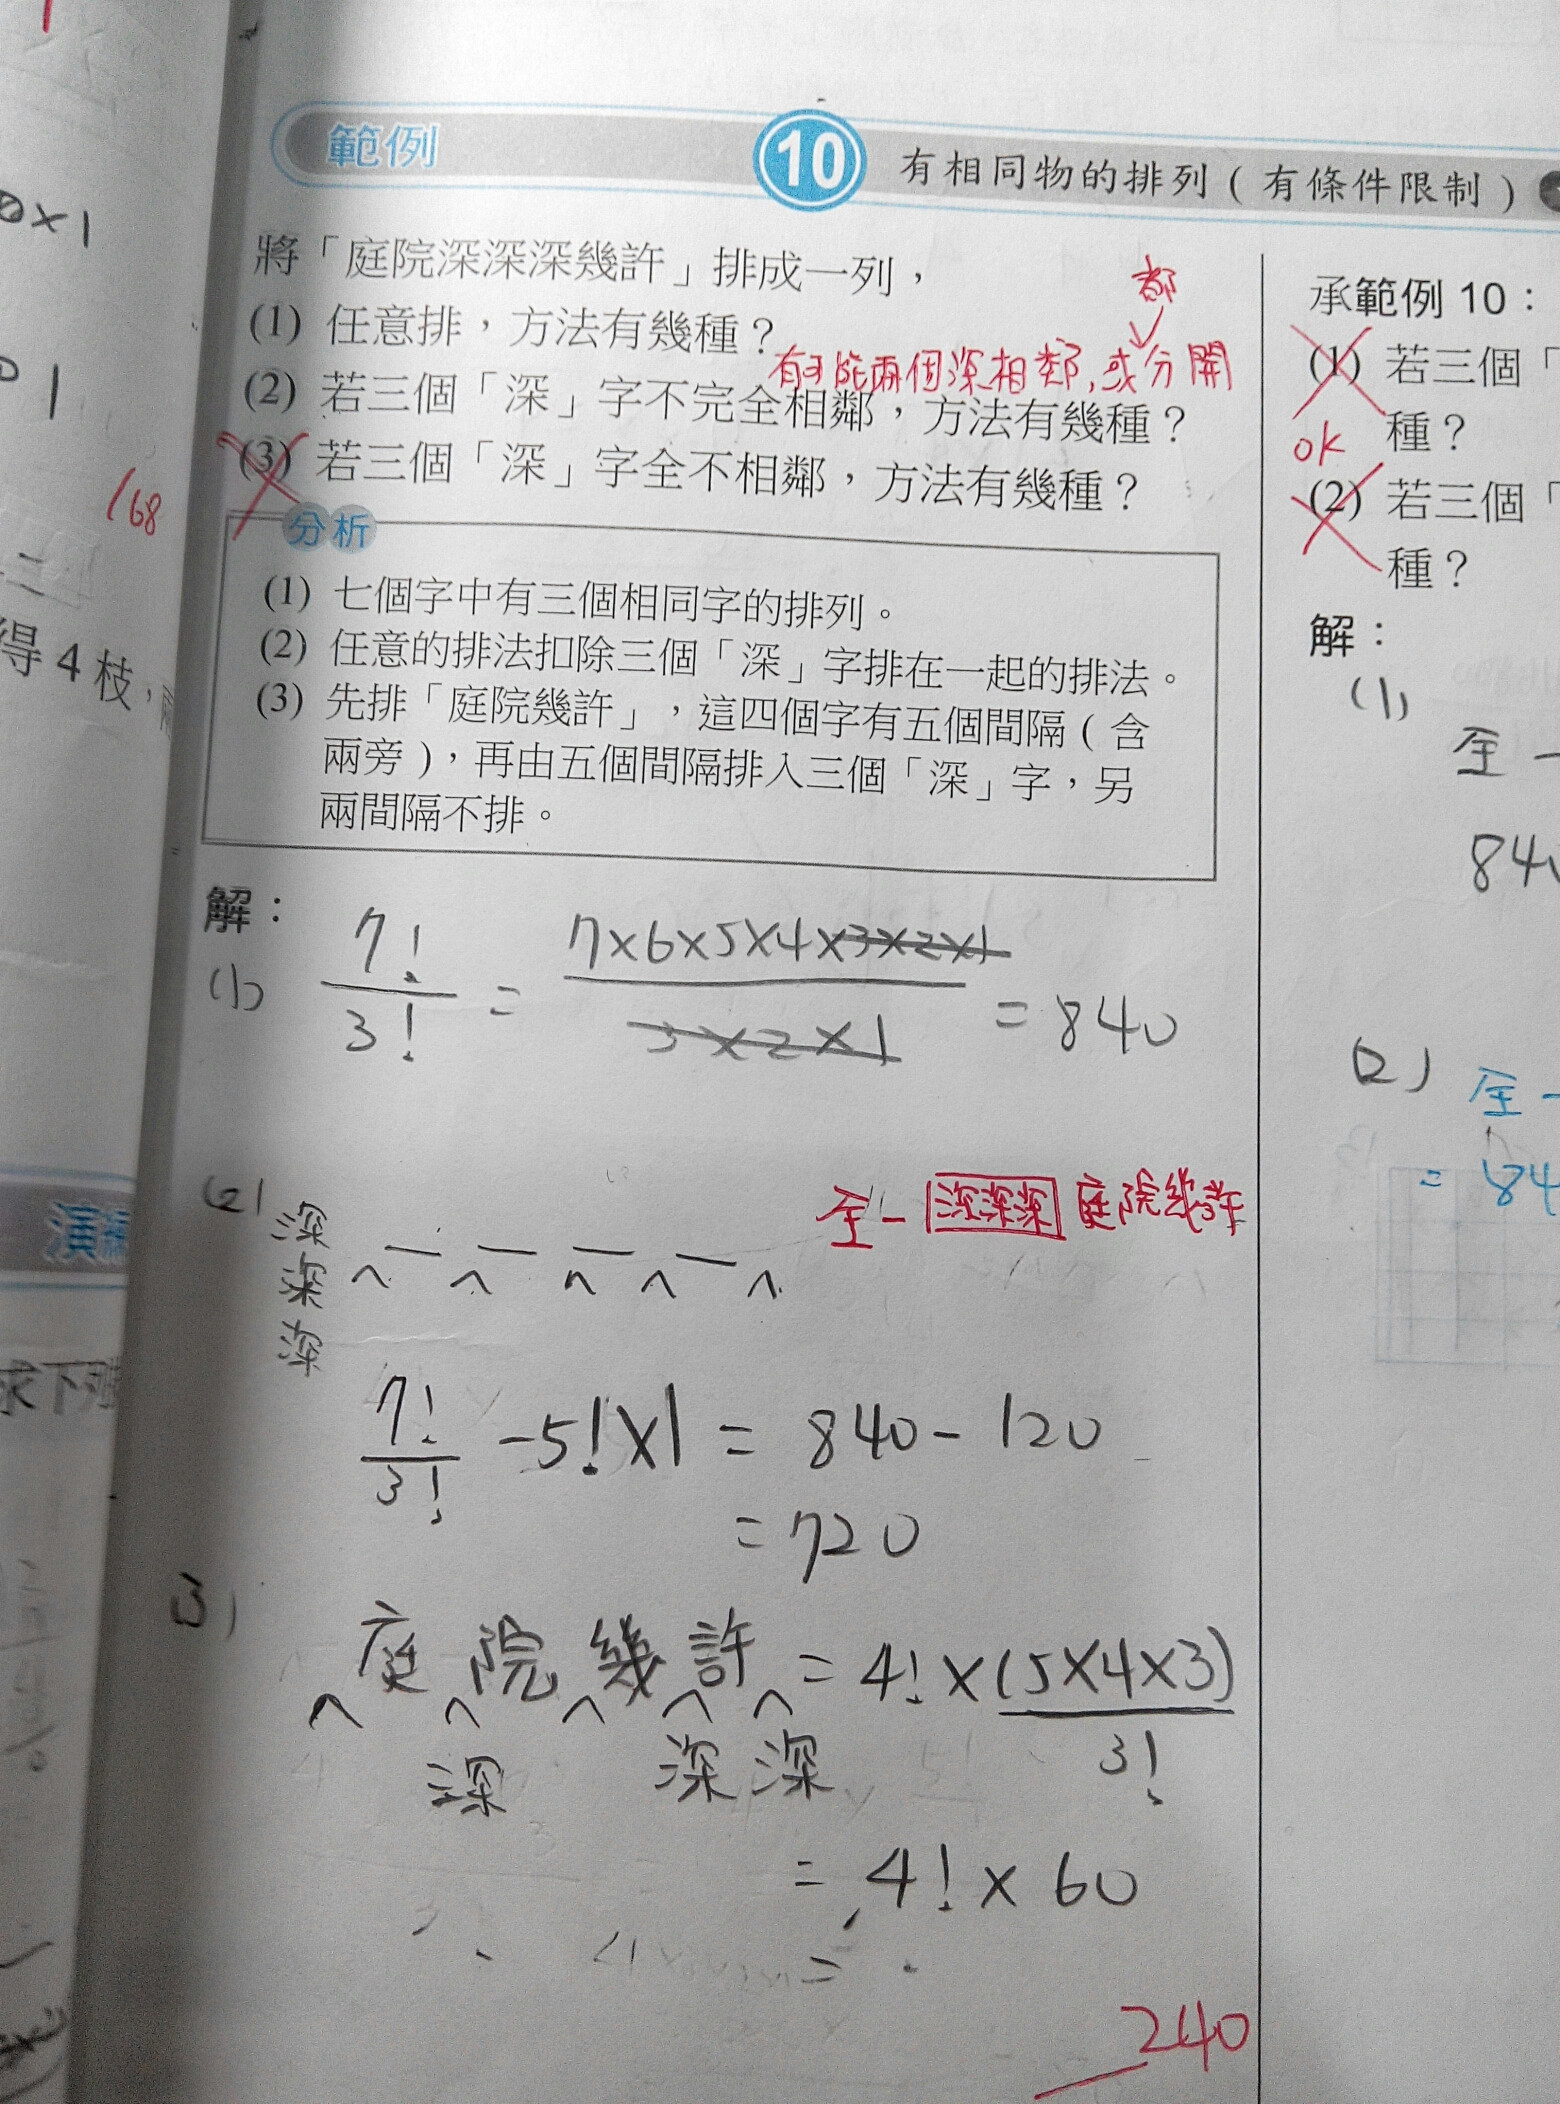 範例 10 有相同物的排列(有條件限制)
將「庭院深深深幾許」排成一列,
(1) 任意排,方法有幾種?
都
有可能兩個深相鄰,或分開
(2) 若三個「深」字不完全相鄰,方法有幾種?
(3) 若三個「深」字全不相鄰,方法有幾種?
分析
(1) 七個字中有三個相同字的排列。
(2) 任意的排法扣除三個「深」字排在一起的排法。
(3) 先排「庭院幾許」,這四個字有五個間隔(含
兩旁),再由五個間隔排入三個「深」字,另
兩間隔不排。
解:
(1) 7!/3! = 7×6×5×4×3×2×1/3×2×1 = 840
(2) 全- 深深深 庭院幾許
深
深
深
7!/3! -5!×1 = 840-120
=720
(3) 庭院幾許 = 4!×(5×4×3)/3!
深 深 深
= 4!×60
=
240
承範例 10:
(1) 若三個「
種?
ok
(2) 若三個「
種?
解:
(1)
全-
84
(2) 全-
= 84
0×1
1
168
得 4 枝,
演
求下列